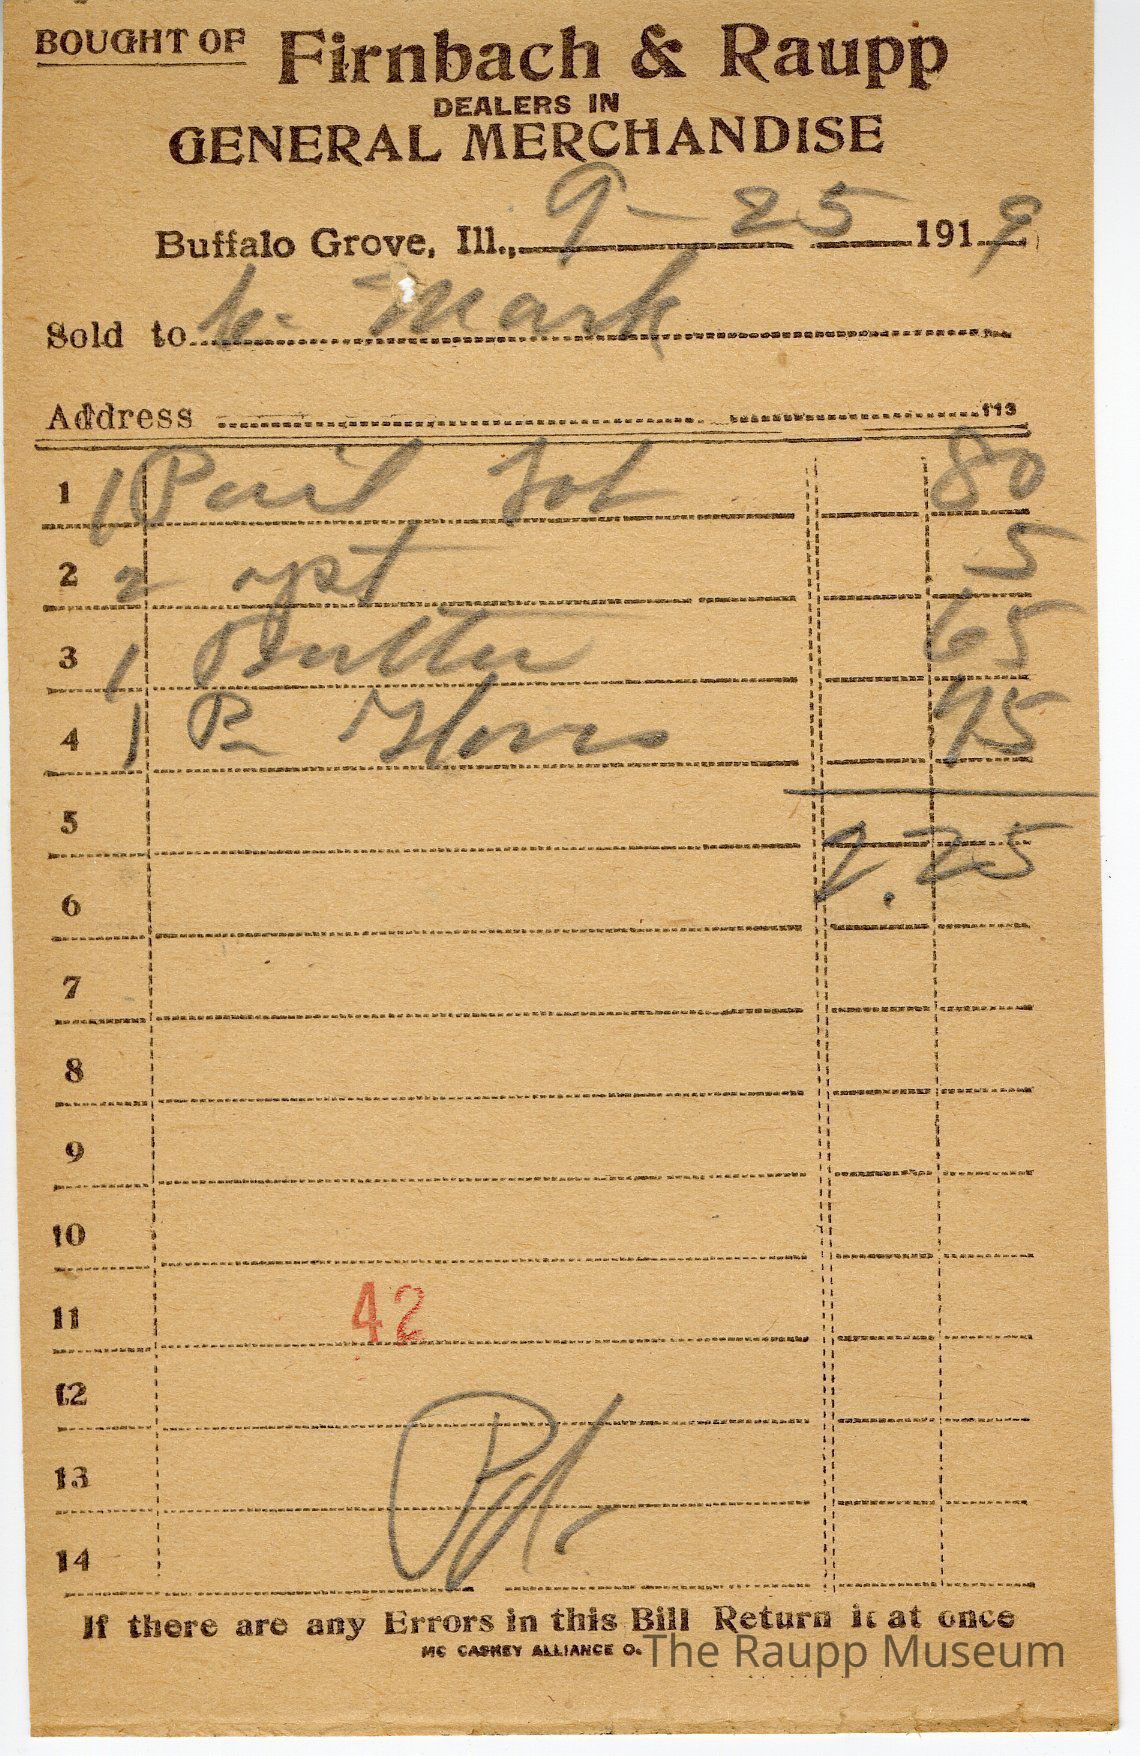 BOUGHT OF Firnbach & Raupp
DEALERS IN
GENERAL MERCHANDISE
Buffalo Grove, Ill., 9-25 1919
Sold to Mark
Address 113
1 1 Pail 80
2 2 5
3 1 Butter 65
4 1 Pr Gloves 75
5 2.25
6
7
8
9
10
11 42
12
13 Pd
14
If there are any Errors in this Bill Return it at once
MC CASKEY ALLIANCE O.
The Raupp Museum